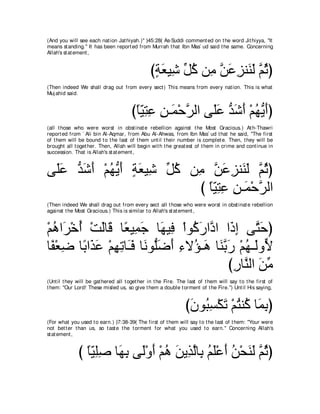 (And you will see each nation Jathiyah.)" )45:28( As-Suddi commented on the word Jithiyya, "It
means standing.'' It has been reported from Murrah that Ibn Mas`ud said the same. Concerning
Allah's statement,
(ثُمَّ لَنَنزِعَنَّ مِن كُلِّ شِيعَةٍ)
(Then indeed We shall drag out from every sect) This means from every nation. This is what
Mujahid said.
(أَيُّهُمْ أَشَدُّ عَلَى الرَّحْمَـنِ عِتِيّاً)
(all those who were worst in obstinate rebellion against the Most Gracious.) Ath-Thawri
reported from `Ali bin Al-Aqmar, from Abu Al-Ahwas, from Ibn Mas`ud that he said, "The first
of them will be bound to the last of them until their number is complete. Then, they will be
brought all together. Then, Allah will begin with the greatest of them in crime and continue in
succession. That is Allah's statement,
(ثُمَّ لَنَنزِعَنَّ مِن كُلِّ شِيعَةٍ أَيُّهُمْ أَشَدُّ عَلَى
الرَّحْمَـنِ عِتِيّاً )
(Then indeed We shall drag out from every sect all those who were worst in obstinate rebellion
against the Most Gracious.) This is similar to Allah's statement,
(حَتَّى إِذَا ادَّارَكُواْ فِيهَا جَمِيعًا قَالَتْ أُخْرَاهُمْ
لأُولَـهُمْ رَبَّنَا هَـؤُلاءِ أَضَلُّونَا فَـاتِهِمْ عَذَابًا ضِعْفًا
مِّنَ النَّارِ)
(Until they will be gathered all together in the Fire. The last of them will say to the first of
them: "Our Lord! These misled us, so give them a double torment of the Fire.") Until His saying,
(بِمَا كُنتُمْ تَكْسِبُونَ)
(For what you used to earn.) )7:38-39( The first of them will say to the last of them: "Your were
not better than us, so taste the torment for what you used to earn.'' Concerning Allah's
statement,
(ثُمَّ لَنَحْنُ أَعْلَمُ بِالَّذِينَ هُمْ أَوْلَى بِهَا صِلِيّاً )